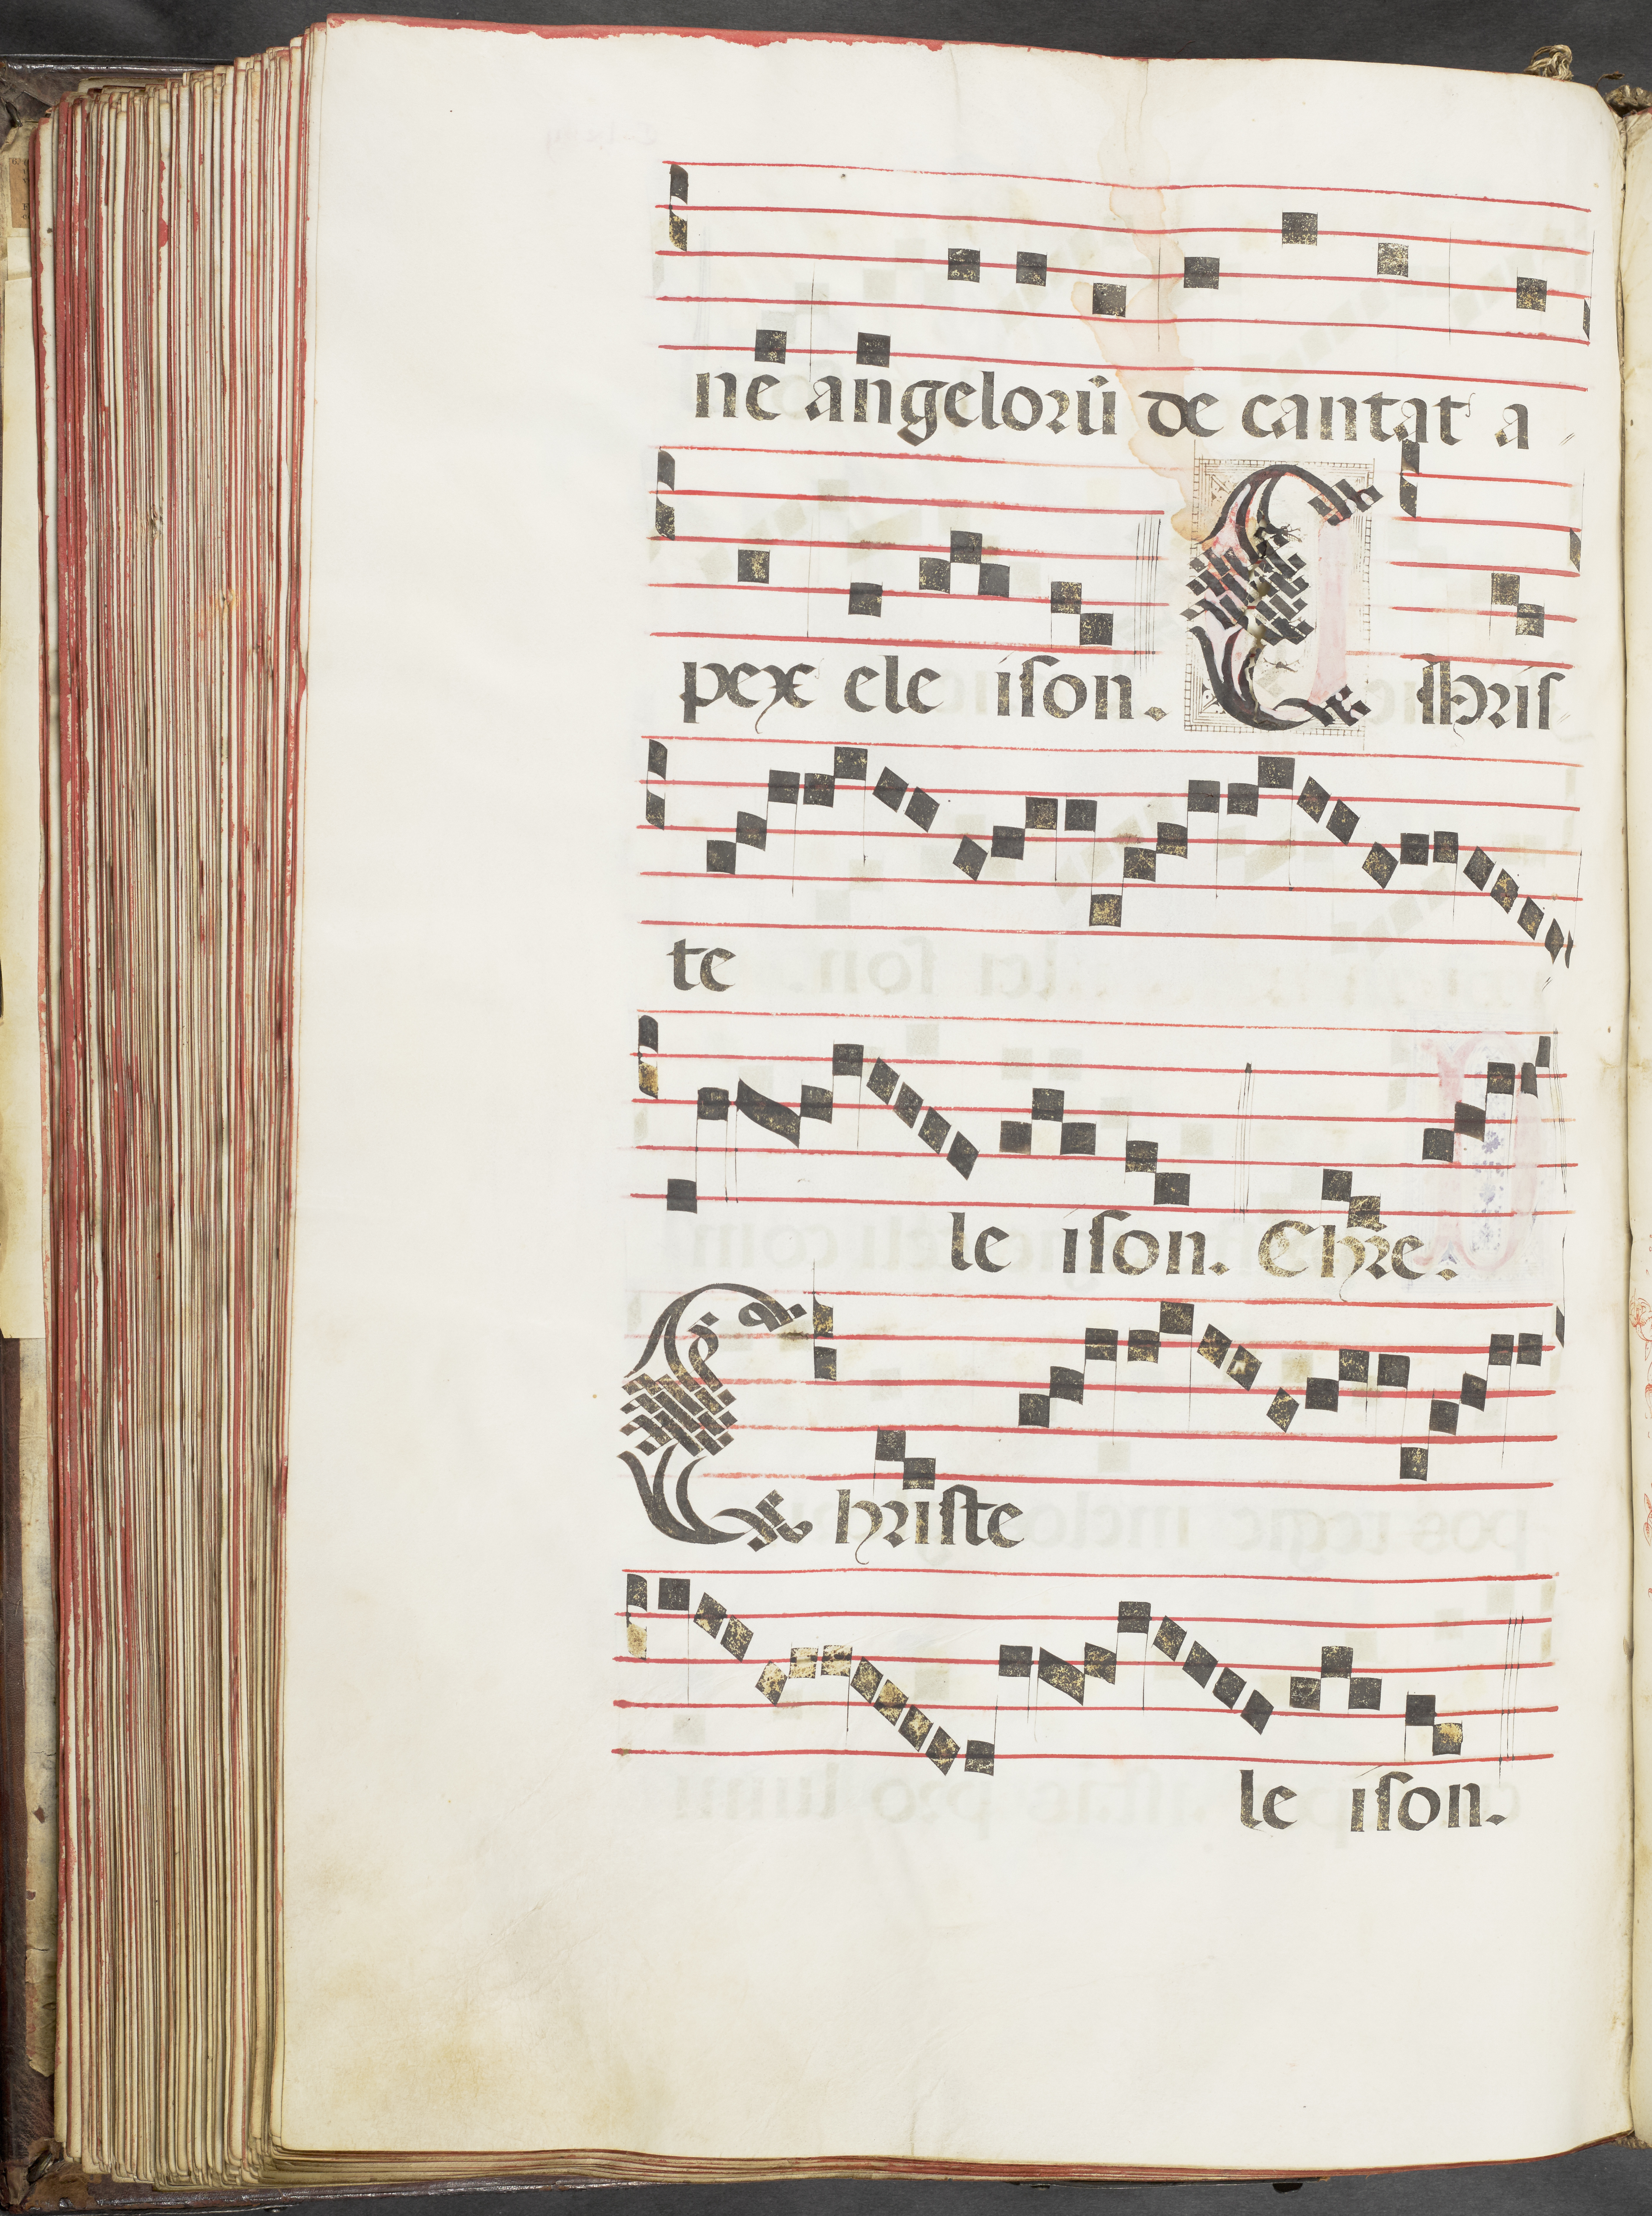 ne angeloꝛū de cantat a
pex ele iſon. Chriſ
te
le iſon. Chꝛe.
Chriſte
le iſon.